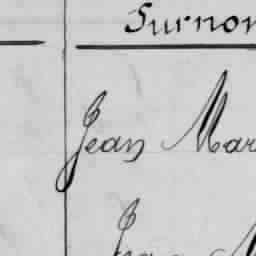 Surnom
Jean Mar